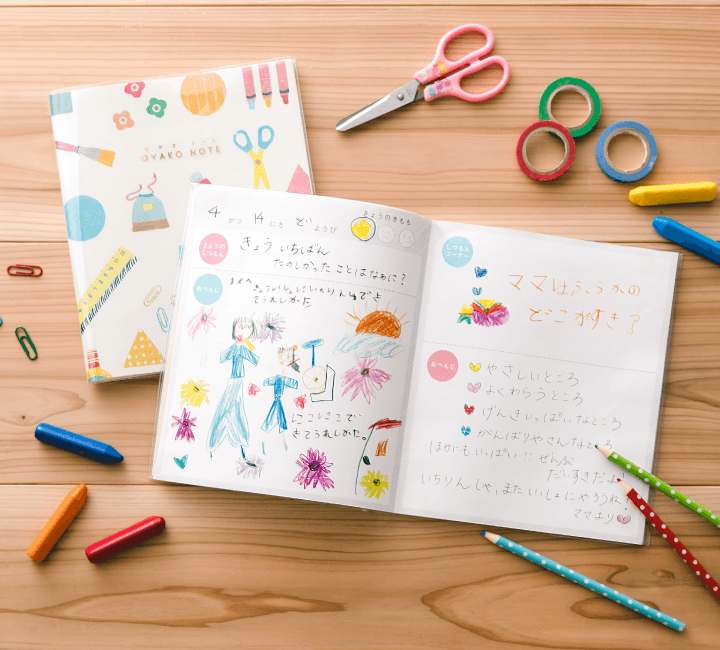 OYAKO NOTE
4 がつ 14 にち ど ようび
きょうのきもち
きょうの
しつもん
きょう いちばん
たのしかった ことはなぁに?
おへんじ
ままへ
きょういしょにいちりんしゃでき
てうれしかた
にこにこで
きてうれしかた。
しつもん
コーナー
ママはふうかの
どこがすき?
おへんじ
やさしいところ
よくわらうところ
げんきいっぱいなところ
がんばりやさんなところ
ほかにもいっぱい!! ぜんぶ
だいすきだよ!
いちりんしゃ、またいっしょにやろうね!
ママより